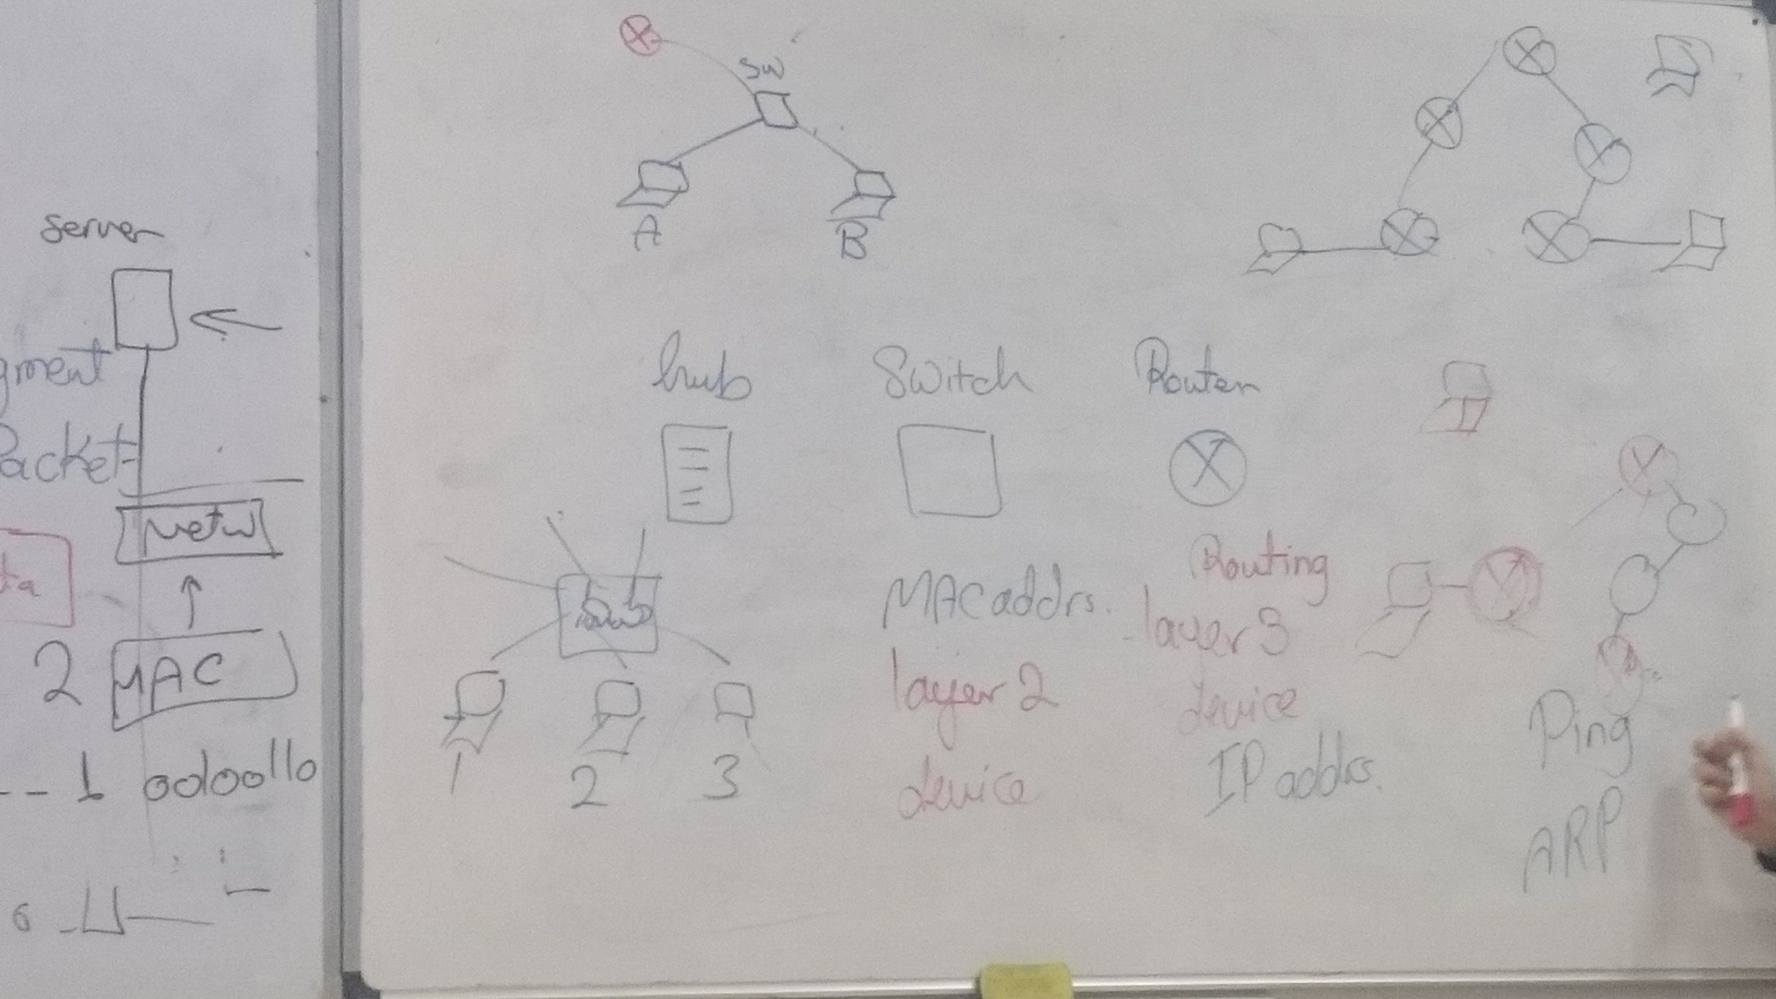 server
gment
Packet
Netw
ta
2 MAC
1
SW
A
B
hub
Switch
Router
hub
1
2
3
MAC addrs.
layer 2
device
Routing
layer 3
device
IP addrs.
Ping
ARP